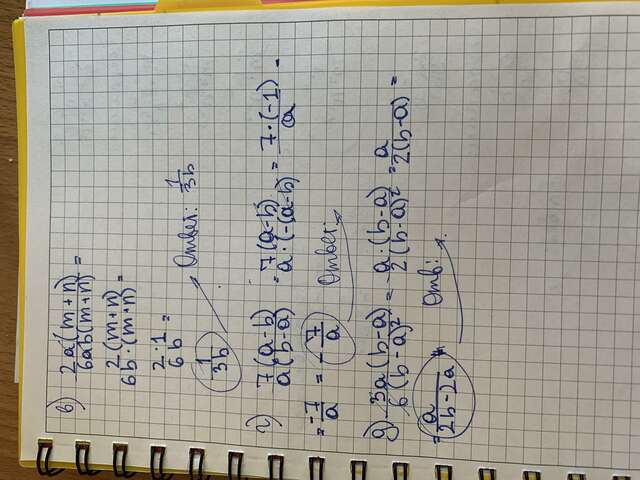 в) 2a(m+n)/6ab(m+n) =
2(m+n)/6b·(m+n) =
2·1/6b =
1/3b → Ответ: 1/3b
г) 7(a-b)/a(b-a) = 7(a-b)/a·(-(a-b)) = 7·(-1)/a =
= -7/a = -7/a Ответ:
д) 3a(b-a)/6(b-a)² = a·(b-a)/2(b-a)² = a/2(b-a) =
= a/2b-2a Отв: